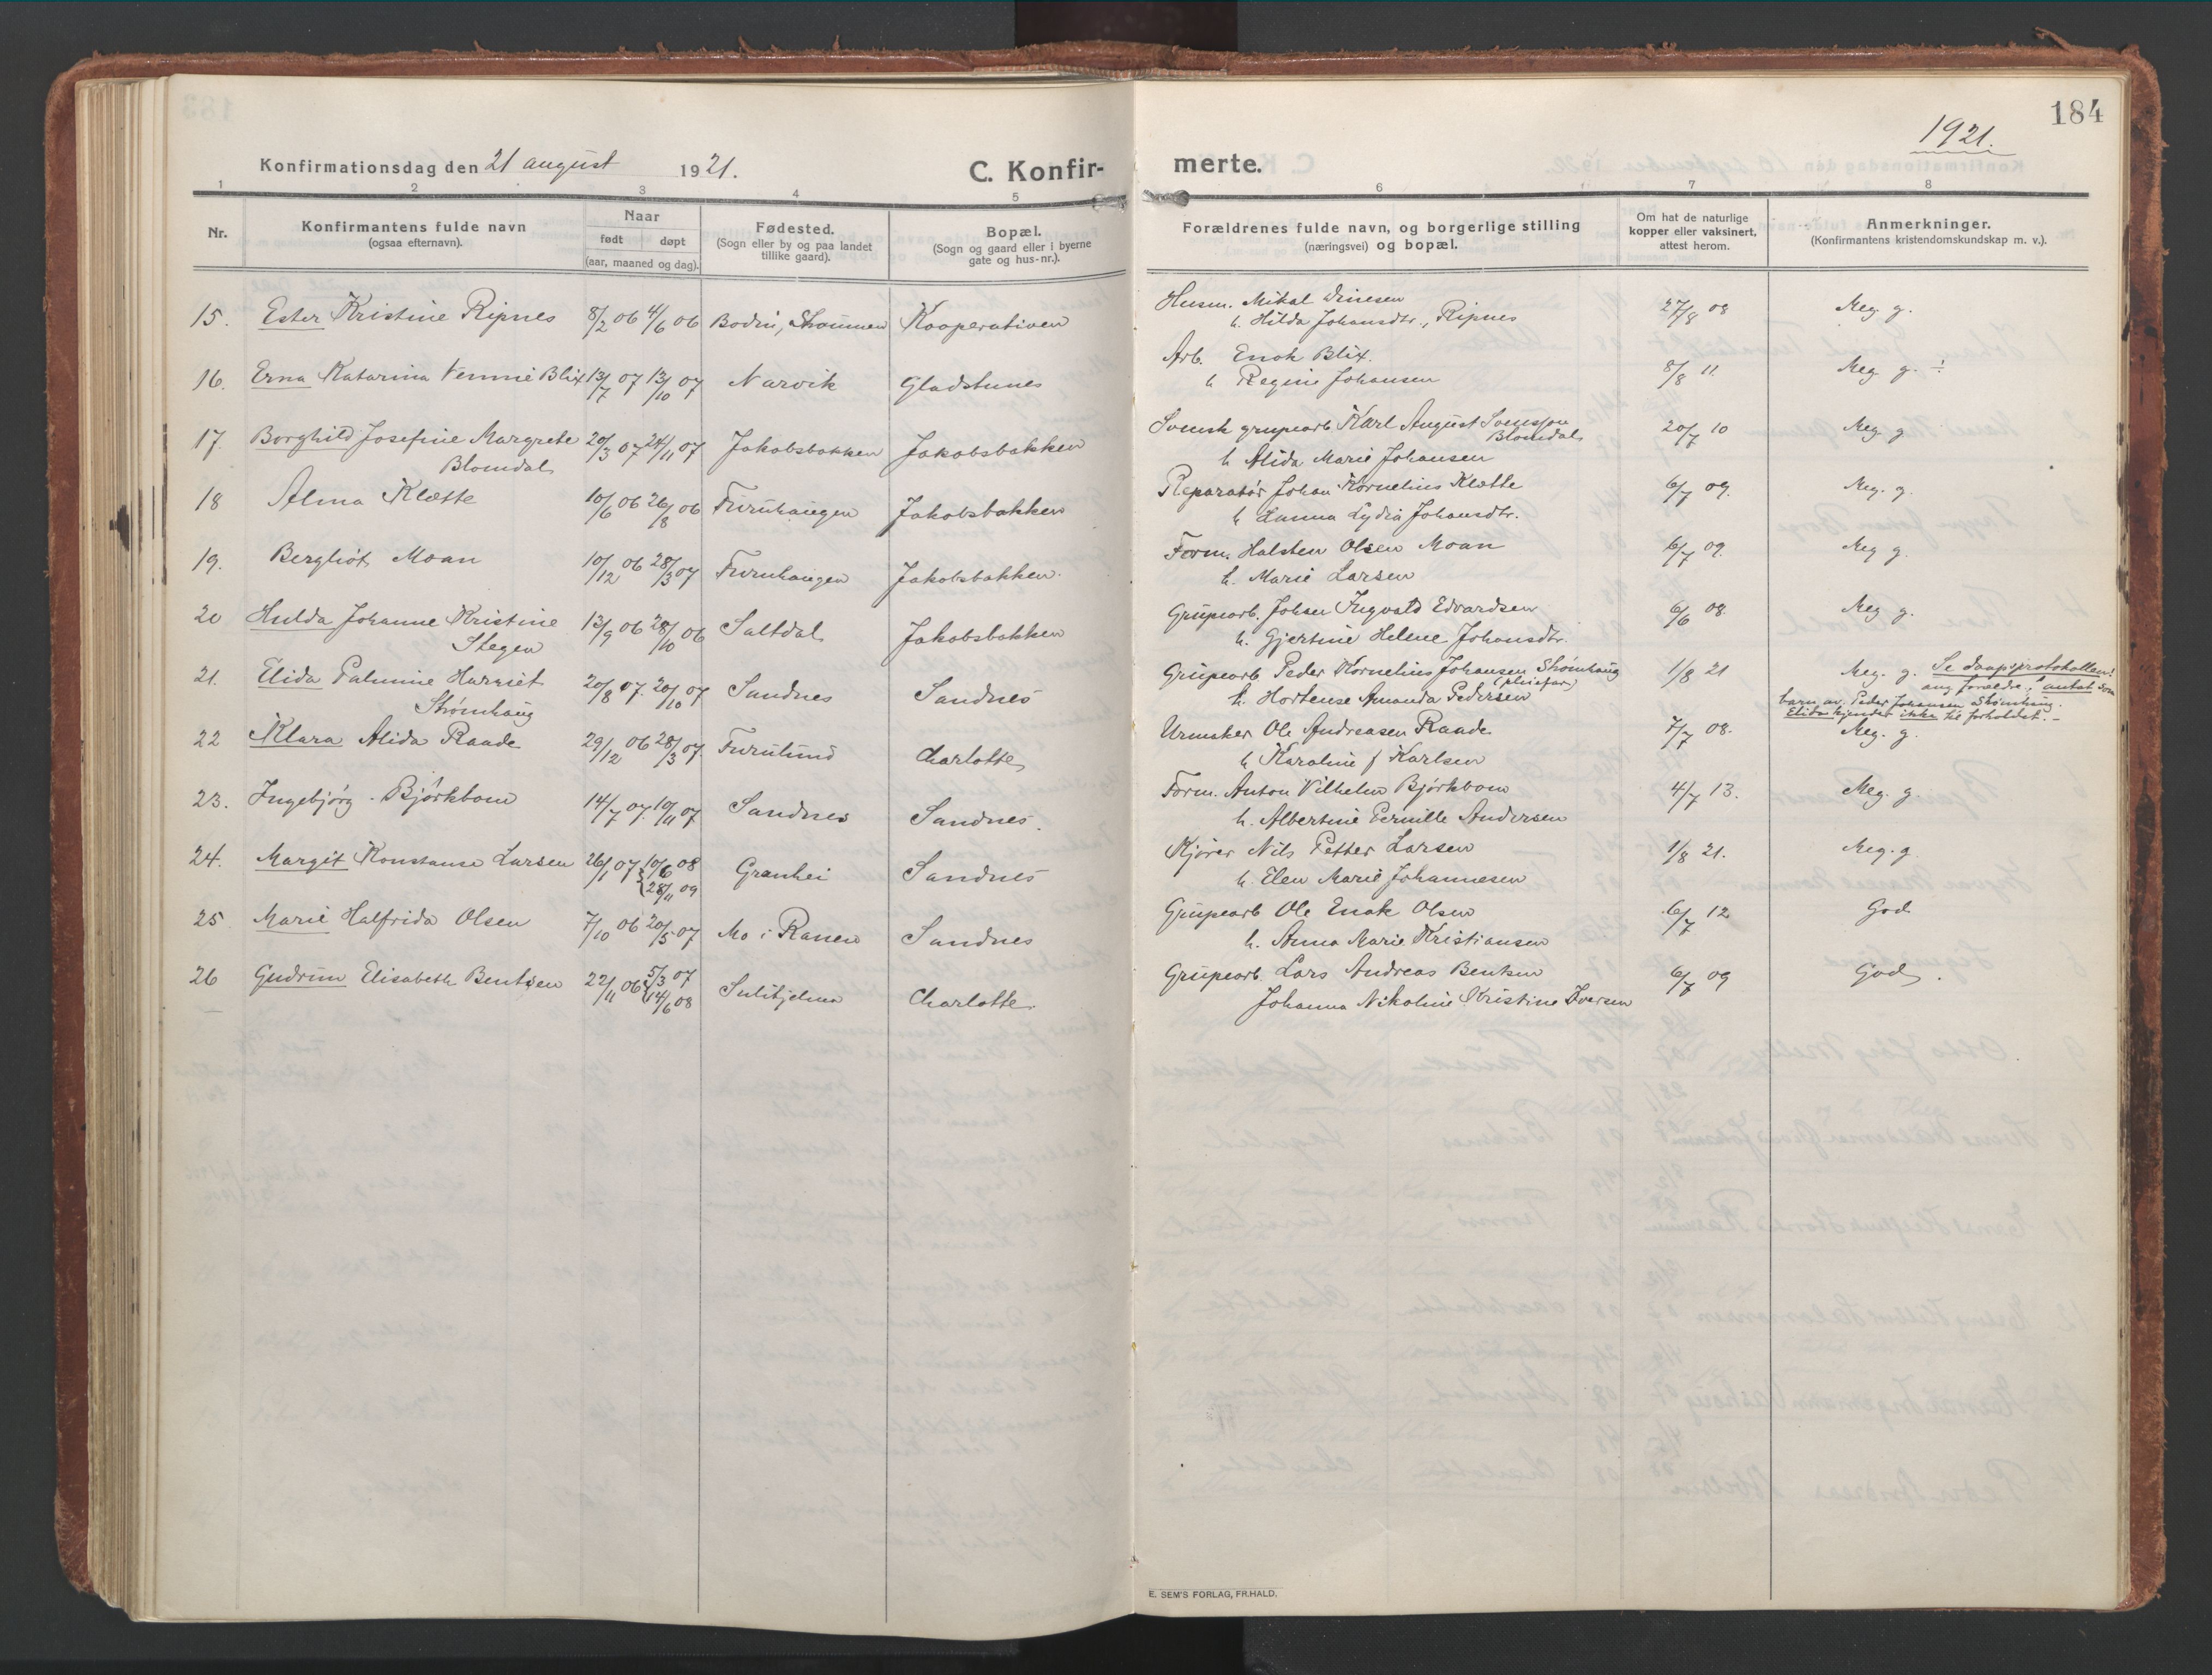 184
1921.
Konfirmationsdag den 21 august 1921.
C. Konfir-
merte.
1 2 3 4 5 6 7 8
Nr.
Konfirmantens fulde navn
(ogsaa efternavn).
Naar
født døpt
(aar, maaned og dag).
Fødested.
(Sogn eller by og paa landet
tillike gaard).
Bopæl.
(Sogn og gaard eller i byerne
gate og hus-nr.).
Forældrenes fulde navn, og borgerlige stilling
(næringsvei) og bopæl.
Om hat de naturlige
kopper eller vaksinert,
attest herom.
Anmerkninger.
(Konfirmantens kristendomskundskap m. v.).
15. Ester Kristine Ripnes 8/2 06 4/6 06 Bodin, Strømmen Kooperativen Husm. Mikal 27/8 08 Meg g.
h. Hilda Johansdtr., Ripnes
16. Erna Katarina Blix 13/7 07 13/10 07 Narvik Gladstunes Arb. Enok Blix. 8/8 11. Meg g.
h Regine Johansen
17. Borghild Josefine Margrete 20/3 07 24/11 07 Jakobsbakken Jakobsbakken Svensk grupearb Karl August Svensson 20/7 10 Meg g
Blomdal Blomdal
h Alida Marie Johansen
18 Alma Klette 10/6 06 26/8 06 Furuhaugen Jakobsbakken Reparatør Johan Kornelius Klette 6/7 09. Meg. g.
h Lydia Johansdtr.
19. Bergliot Moan 10/12 06 28/3 07 Furuhaugen Jakobsbakken. Form. Halsten Olsen Moan 6/7 09. Meg g.
h. Marie Larsen
20 Hulda Johanne Kristine 13/9 06 28/10 06 Saltdal Jakobsbakken Grupearb. Johan Ingvald Edvardsen 6/6 08. Meg g.
Stegen h. Gjertine Helene Johansdtr.
21. Elida Palmine Harriet 20/8 07. 20/10 07 Sandnes Sandnes Grupearb Peder Kornelius Johansen Strømhaug 1/8 21 Meg. g. Se daapsprotokollen!
Strømhaug (pleiefar) ang forældre! antat som
h. Hortense Amanda Pedersen barn av Peder Johansen Strømhaug.
Elida kjender ikke til forholdet.
22 Klara Alida Raade 29/12 06 28/3 07. Furulund Charlotte Urmaker Ole Andreasen Raade 7/7 08. Meg. g.
h Karoline f Karlsen
23. Ingebjørg Bjørkbom 14/7 07. 10/11 07 Sandnes Sandnes. Form. Anton Vilhelm Bjørkbom 4/7 13. Meg. g.
h. Albertine Pernille Andersen
24. Margit Konstanse Larsen 26/1 07 10/6 08 Granhei Sandnes Kjører Nils Petter Larsen 1/8 21. Meg. g.
28/11 09 h. Elen Marie Johannesen
25. Marie Halfrida Olsen 7/10 06 20/5 07 Mo i Ranen Sandnes Grupearb Ole Enok Olsen 6/7 12 God
h. Anna Marie Kristiansen
26 Gudrun Elisabeth Bentsen 22/11 06 5/3 07 Sulitjelma Charlotte. Grupearb. Lars Andreas Bentsen 6/7 09 God.
14/6 08 Johanna Nikoline Kristine Iversen
E. SEM'S FORLAG, FR.HALD.